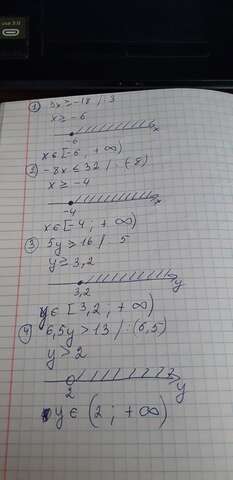 1) 3x ≥ -18 / : 3
x ≥ -6
-6 x
x ∈ [-6 ; + ∞)
2) -8x ≤ 32 / : (-8)
x ≥ -4
-4 x
x ∈ [-4 ; + ∞)
3) 5y ≥ 16 / 5
y ≥ 3,2
3,2 y
y ∈ [3,2 ; + ∞)
4) 6,5y > 13 / : (6,5)
y > 2
2 y
y ∈ (2 ; + ∞)